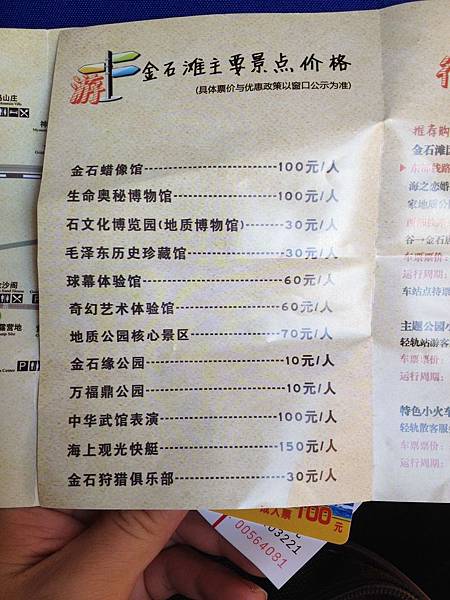 游
金石滩主要景点价格
(具体票价与优惠政策以窗口公示为准)
金石蜡像馆----------------100元/人
生命奥秘博物馆------------100元/人
石文化博览园(地质博物馆)-----30元/人
毛泽东历史珍藏馆-----------30元/人
球幕体验馆----------------60元/人
奇幻艺术体验馆------------60元/人
地质公园核心景区----------70元/人
金石缘公园----------------10元/人
万福鼎公园----------------10元/人
中华武馆表演--------------100元/人
海上观光快艇--------------150元/人
金石狩猎俱乐部------------30元/人
马山庄
沙阁
露营地
Center
推荐购
金石滩
东部线路
海之恋婚
家地质公
谷一金石
车票票价:
运行周期:
车站点持票
主题公园小
轻轨站游客
车票票价:
运行周期:
特色小火车
轻轨散客服
车票票价:
运行周期:
成人票100元
03221
00564081